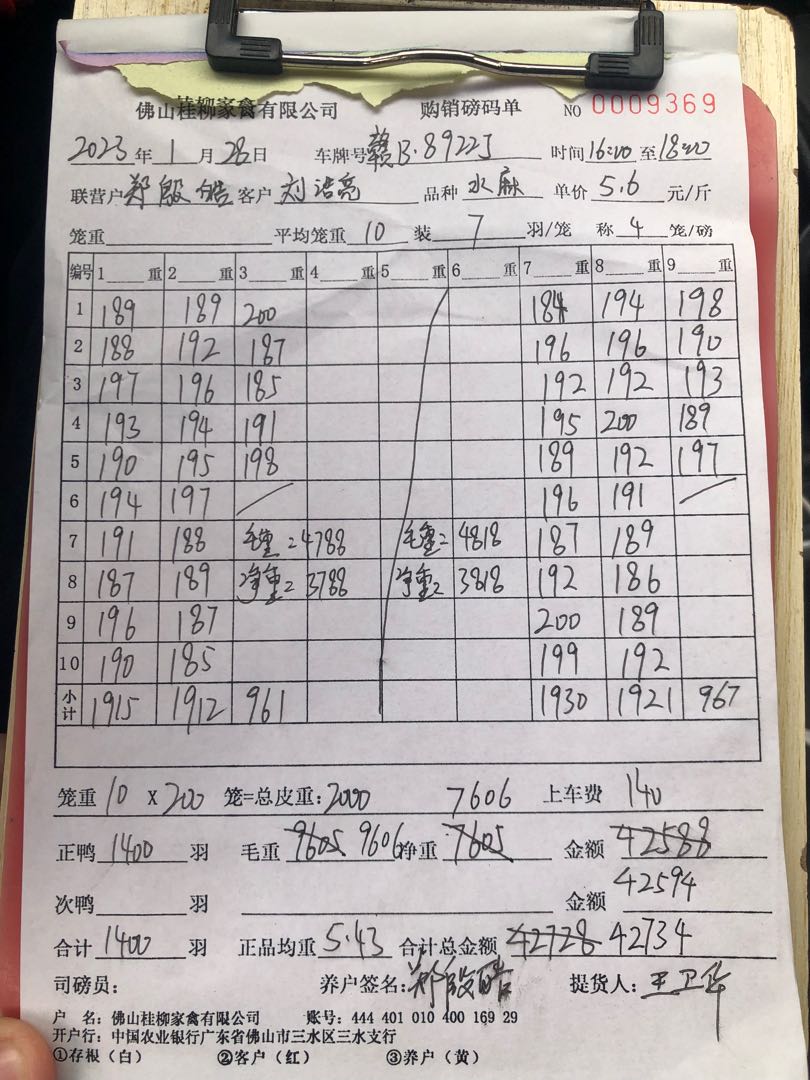 佛山桂柳家禽有限公司 购销磅码单 NO 0009369
2023年 1 月 28日 车牌号 赣B·8922J 时间16:00至18:00
联营户 郑殷皓 客户 刘浩亮 品种 水麻 单价 5.6 元/斤
笼重 平均笼重 10 装 7 羽/笼 称 4 笼/磅
编号 1 重 2 重 3 重 4 重 5 重 6 重 7 重 8 重 9 重
1 189 189 200 184 194 198
2 188 192 187 196 196 190
3 197 196 185 192 192 193
4 193 194 191 195 200 189
5 190 195 198 189 192 197
6 194 197 196 191
7 191 188 毛重=4788 毛重=4818 187 189
8 187 189 净重=3788 净重=3818 192 186
9 196 187 200 189
10 190 185 199 192
小计 1915 1912 961 1930 1921 967
笼重 10 X 200 笼=总皮重:2000 7606 上车费 140
正鸭 1400 羽 毛重 9605 9606 净重 7605 金额 42588
42594
次鸭 羽 金额
合计 1400 羽 正品均重 5.43 合计总金额 42728 42734
司磅员: 养户签名: 郑殷皓 提货人: 王卫华
户 名: 佛山桂柳家禽有限公司 账号: 444 401 010 400 169 29
开户行: 中国农业银行广东省佛山市三水区三水支行
①存根(白) ②客户(红) ③养户(黄)